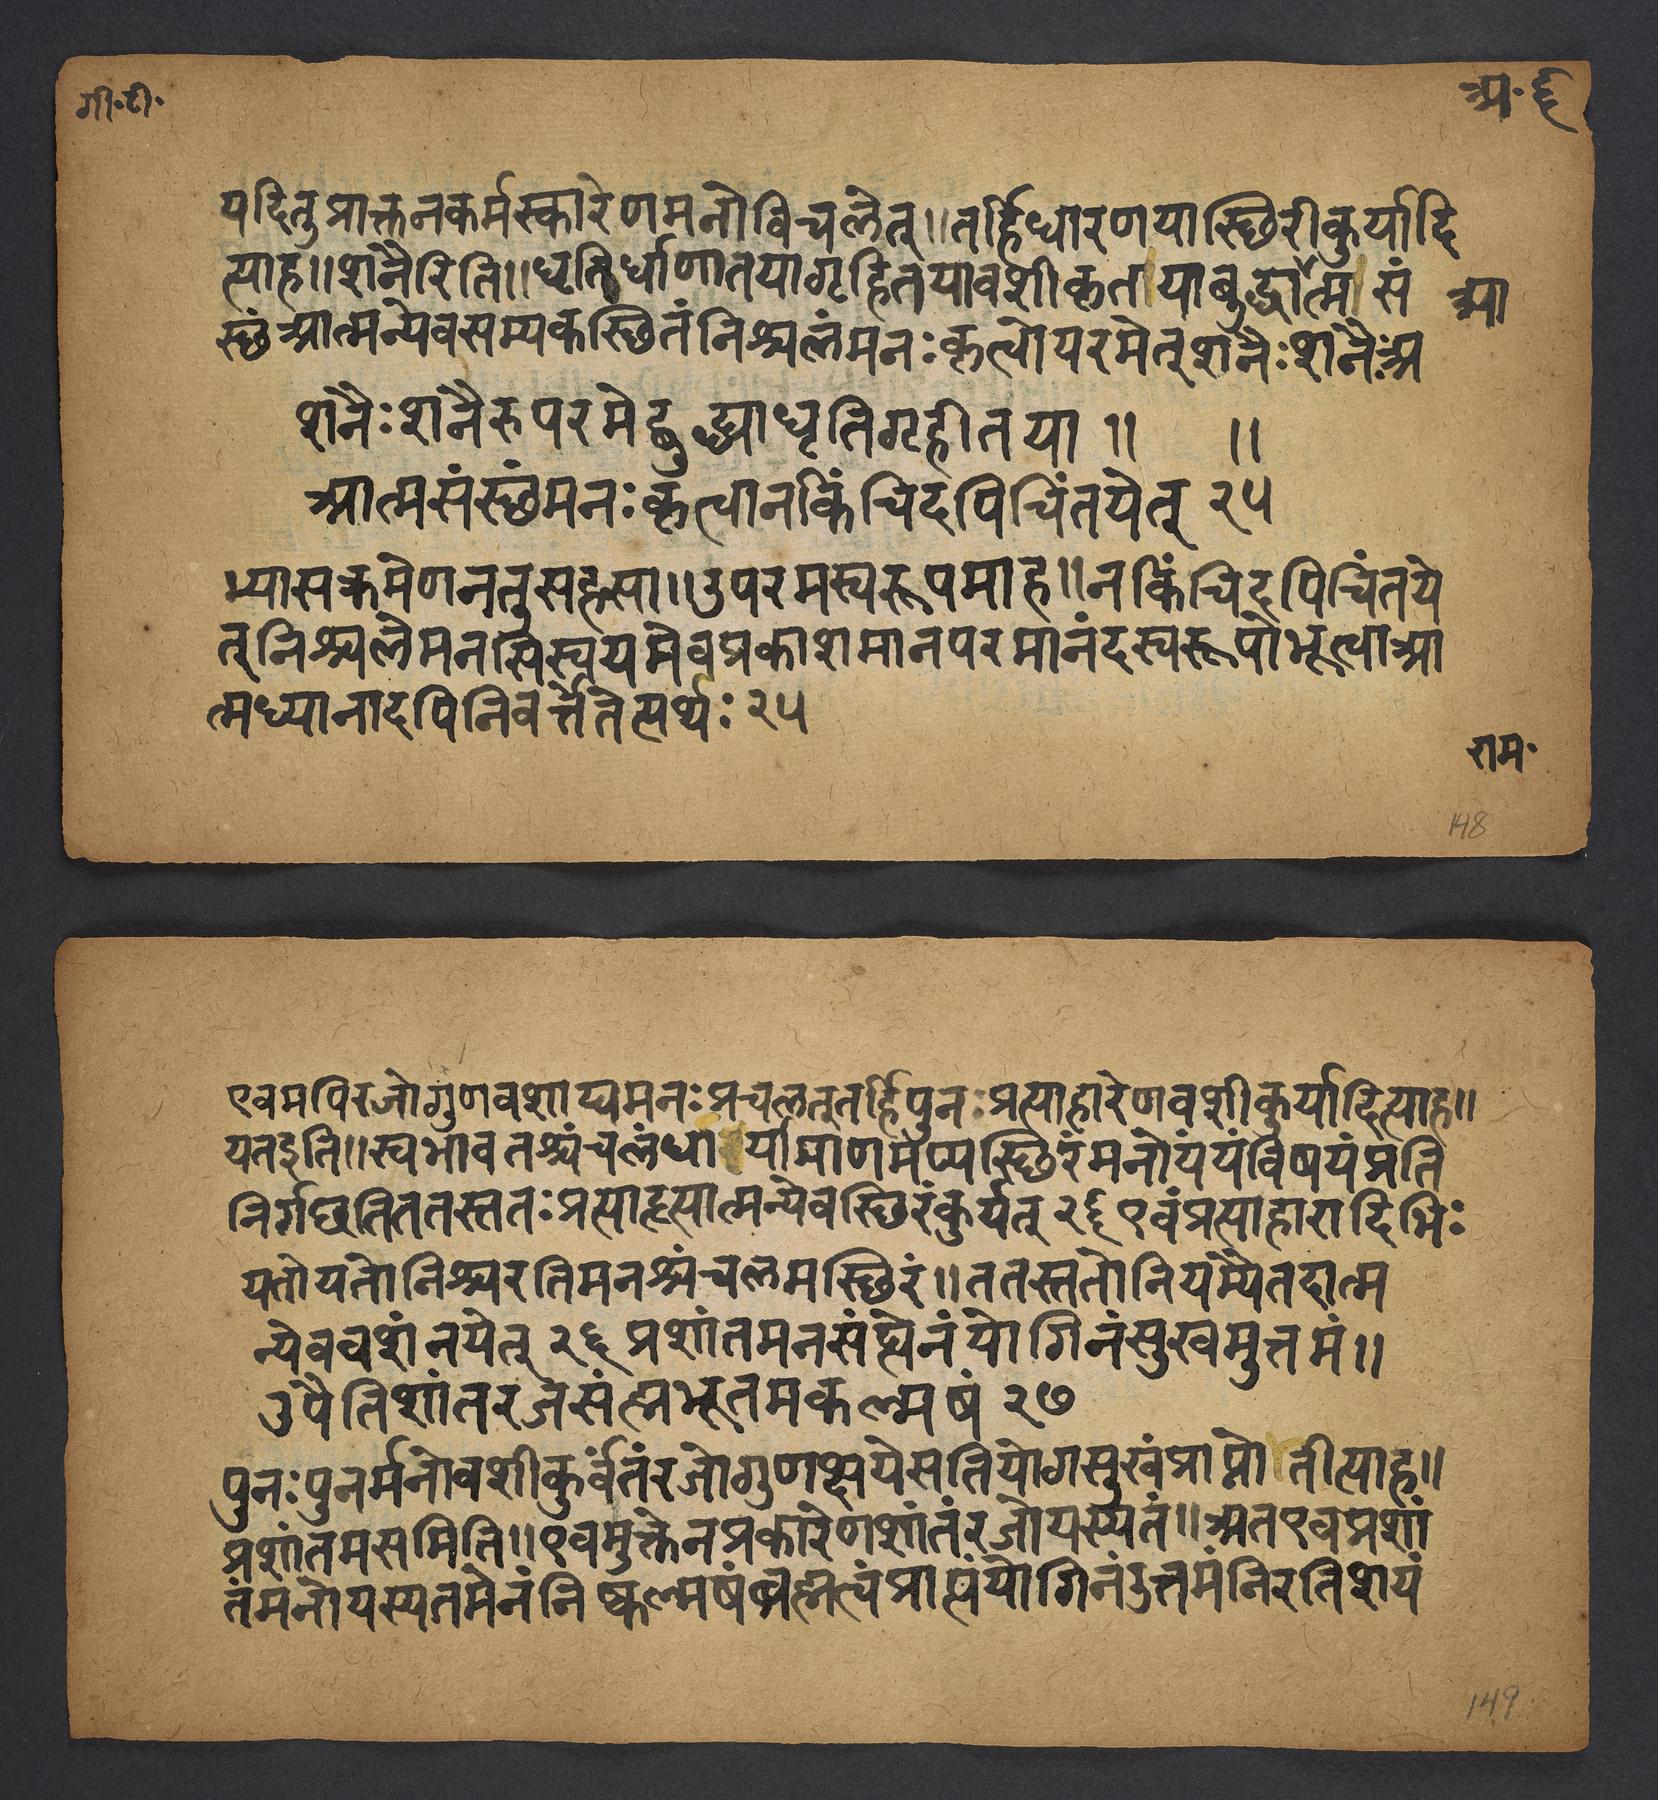 गी॰टी॰
अ॰६
यदितुप्राक्तनकर्मस्कारेणमनोविचलेत्॥तर्हिधारणयास्थिरीकुर्यादि
त्याह॥शनैरिति॥धृतिर्धाणातयागृहितयावशीकृतायाबुद्ध्यात्म।सं
आ
स्थंआत्मन्येवसम्यकस्थितंनिश्चलंमनःकृत्वोपरमेत्शनैःशनैःअ
शनैःशनैरुपरमेद्बुद्ध्याधृतिगृहीतया॥ ॥
आत्मसंस्थंमनःकृत्वानकिंचिदपिचिंतयेत् २५
भ्यासक्रमेणनतुसहसा॥उपरमस्वरूपमाह॥नकिंचिदपिचिंतये
त्निश्चलेमनसिस्वयमेवप्रकाशमानपरमानंदस्वरूपोभूत्वाआ
त्मध्यानादपिनिवर्त्तेतेत्यर्थः २५
राम॰
148
एवमपिरजोगुणवशाद्यमनःप्रचलत्तर्हिपुनःप्रत्याहारेणवशीकुर्यादित्याह॥
यतइति॥स्वभावतश्चंचलंधार्यामाणमप्यस्थिरंमनोयंयंविषयंप्रति
निर्गछतितततस्ततःप्रत्याहृत्यात्मन्येवस्थिरंकुर्यत् २६ एवंप्रत्याहारादिभिः
यतोयतोनिश्चरतिमनश्चंचलमस्थिरं॥ततस्ततोनियंम्यैतदात्म
न्येववशंनयेत् २६ प्रशांतमनसंह्येनंयोगिनंसुखमुत्तमं॥
उपैतिशांतरजसंत्मभूतमकल्मषं २७
पुनःपुनर्मनोवशीकुर्वंतंरजोगुणक्षयेसतियोगसुखंप्राप्नोतीत्याह॥
प्रशांतमसमिति॥एवमुक्तेनप्रकारेणशांतंरजोयस्यतं॥अतएवप्रशां
तंमनोयस्यतमेनंनिष्कल्मषंब्रह्मत्वंप्राप्तंयोगिनंउत्तमंनिरतिशयं
149